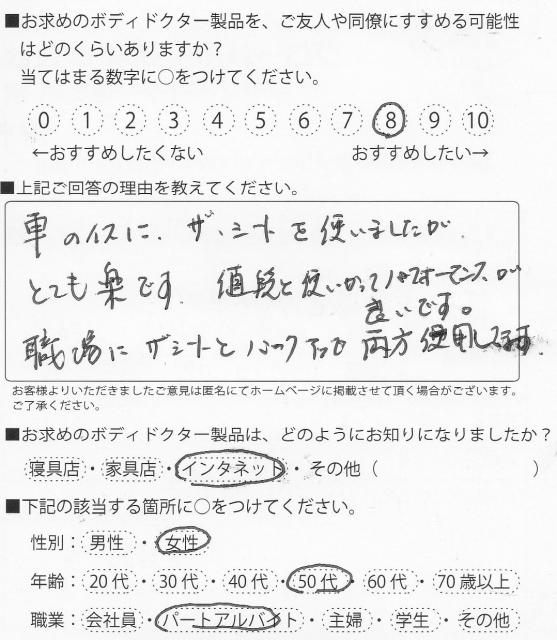 ■お求めのボディドクター製品を、ご友人や同僚にすすめる可能性
はどのくらいありますか？
当てはまる数字に○をつけてください。
0 1 2 3 4 5 6 7 8 9 10
←おすすめしたくない おすすめしたい→
■上記ご回答の理由を教えてください。
車のイスに、ザ・シートを使いましたが
とても楽です。値段と使いかってパフォーマンスが
良いです。
職場にザシートとバック 両方使用してます.
お客様よりいただきましたご意見は匿名にてホームページに掲載させて頂く場合がございます。
ご了承ください。
■お求めのボディドクター製品は、どのようにお知りになりましたか？
寝具店・家具店・インタネット・その他（ ）
■下記の該当する箇所に○をつけてください。
性別：男性・女性
年齢：20 代・30 代・40 代・50 代・60 代・70 歳以上
職業：会社員・パートアルバイト・主婦・学生・その他